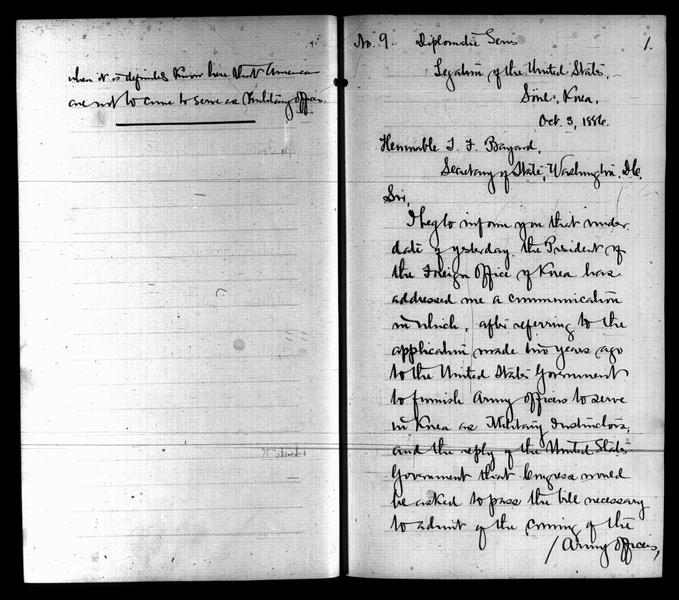 when it is definitely known here that America
are not to come to serve as Military Officers.
No. 9. Diplomatic Series 1.
Legation of the United States,
Söul, Korea,
Oct. 3, 1886.
Honorable T. F. Bayard,
Secretary of State, Washington, D.C.
Sir,
I beg to inform you that under
date of yesterday the President of
the Foreign Office of Korea has
addressed me a communication
in which, after referring to the
application made two years ago
to the United States Government
to furnish Army Officers to serve
in Korea as Military Instructors,
and the reply of the United States
Government that Congress would
be asked to pass the bill necessary
to admit of the coming of the
/ Army Officers,